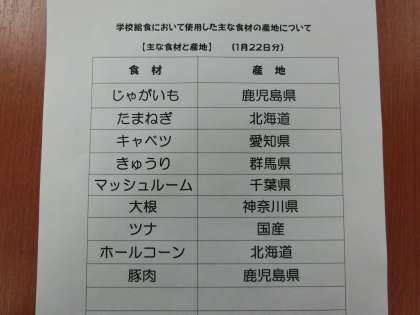 学校給食において使用した主な食材の産地について
【主な食材と産地】 (1月22日分)
食材 産地
じゃがいも 鹿児島県
たまねぎ 北海道
キャベツ 愛知県
きゅうり 群馬県
マッシュルーム 千葉県
大根 神奈川県
ツナ 国産
ホールコーン 北海道
豚肉 鹿児島県